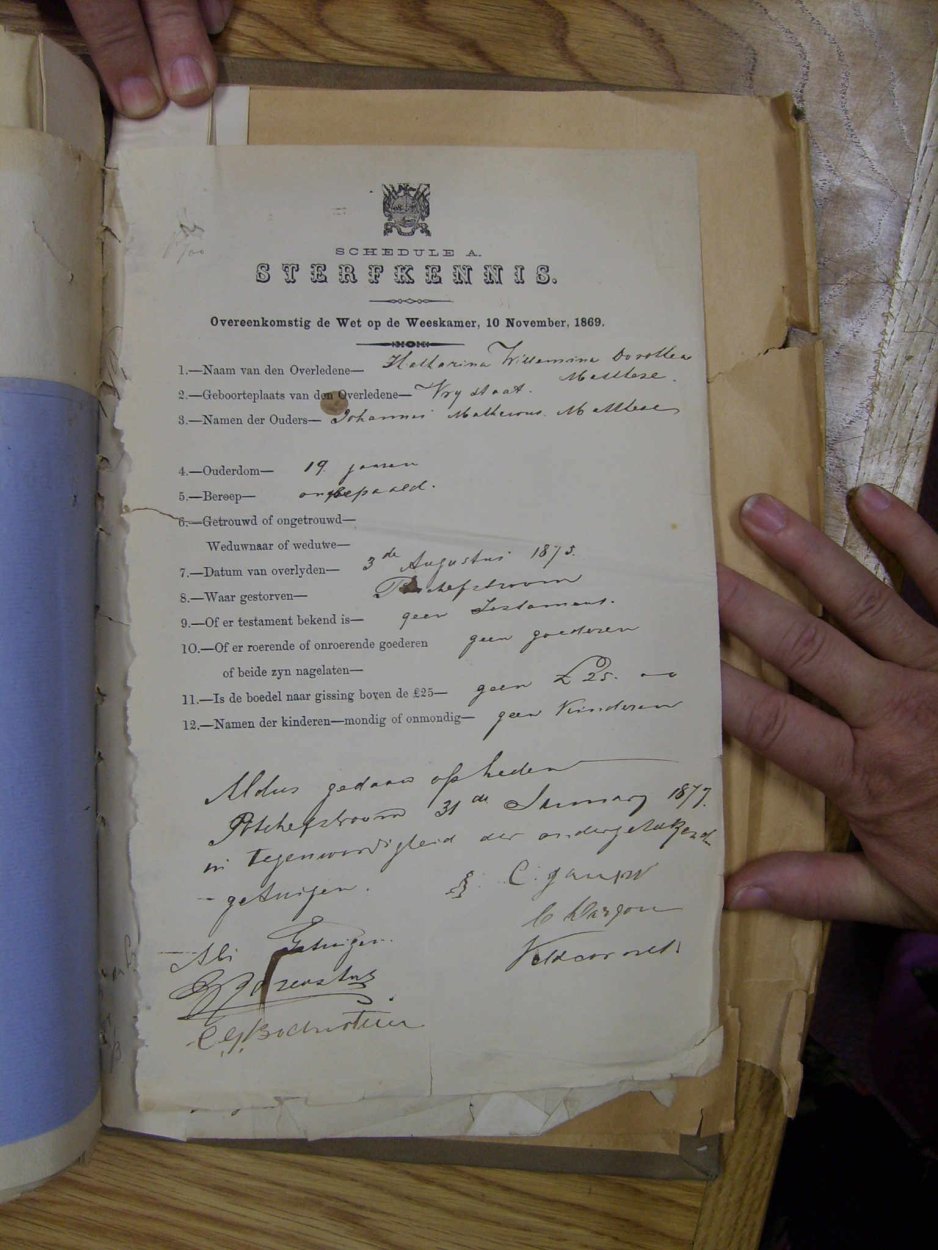 SCHEDULE A.
STERFKENNIS.
Overeenkomstig de Wet op de Weeskamer, 10 November, 1869.
1.—Naam van den Overledene— Katharina Willemina Dorothea
2.—Geboorteplaats van den Overledene— Vry staat.
3.—Namen der Ouders— Johannes
4.—Ouderdom— 19 jaaren
5.—Beroep— onbepaald.
6.—Getrouwd of ongetrouwd—
Weduwnaar of weduwe—
7.—Datum van overlyden— 3de Augustus 1875.
8.—Waar gestorven— Potchefstroom
9.—Of er testament bekend is— geen Testament.
10.—Of er roerende of onroerende goederen geen goederen
of beide zyn nagelaten—
11.—Is de boedel naar gissing boven de £25— geen £ 25.
12.—Namen der kinderen—mondig of onmondig— geen Kinderen
Aldus gedaan op heden
Potchefstroom 31de January 1877.
in tegenwoordigheid der ondergetekende
getuigen.
Als Getuigen